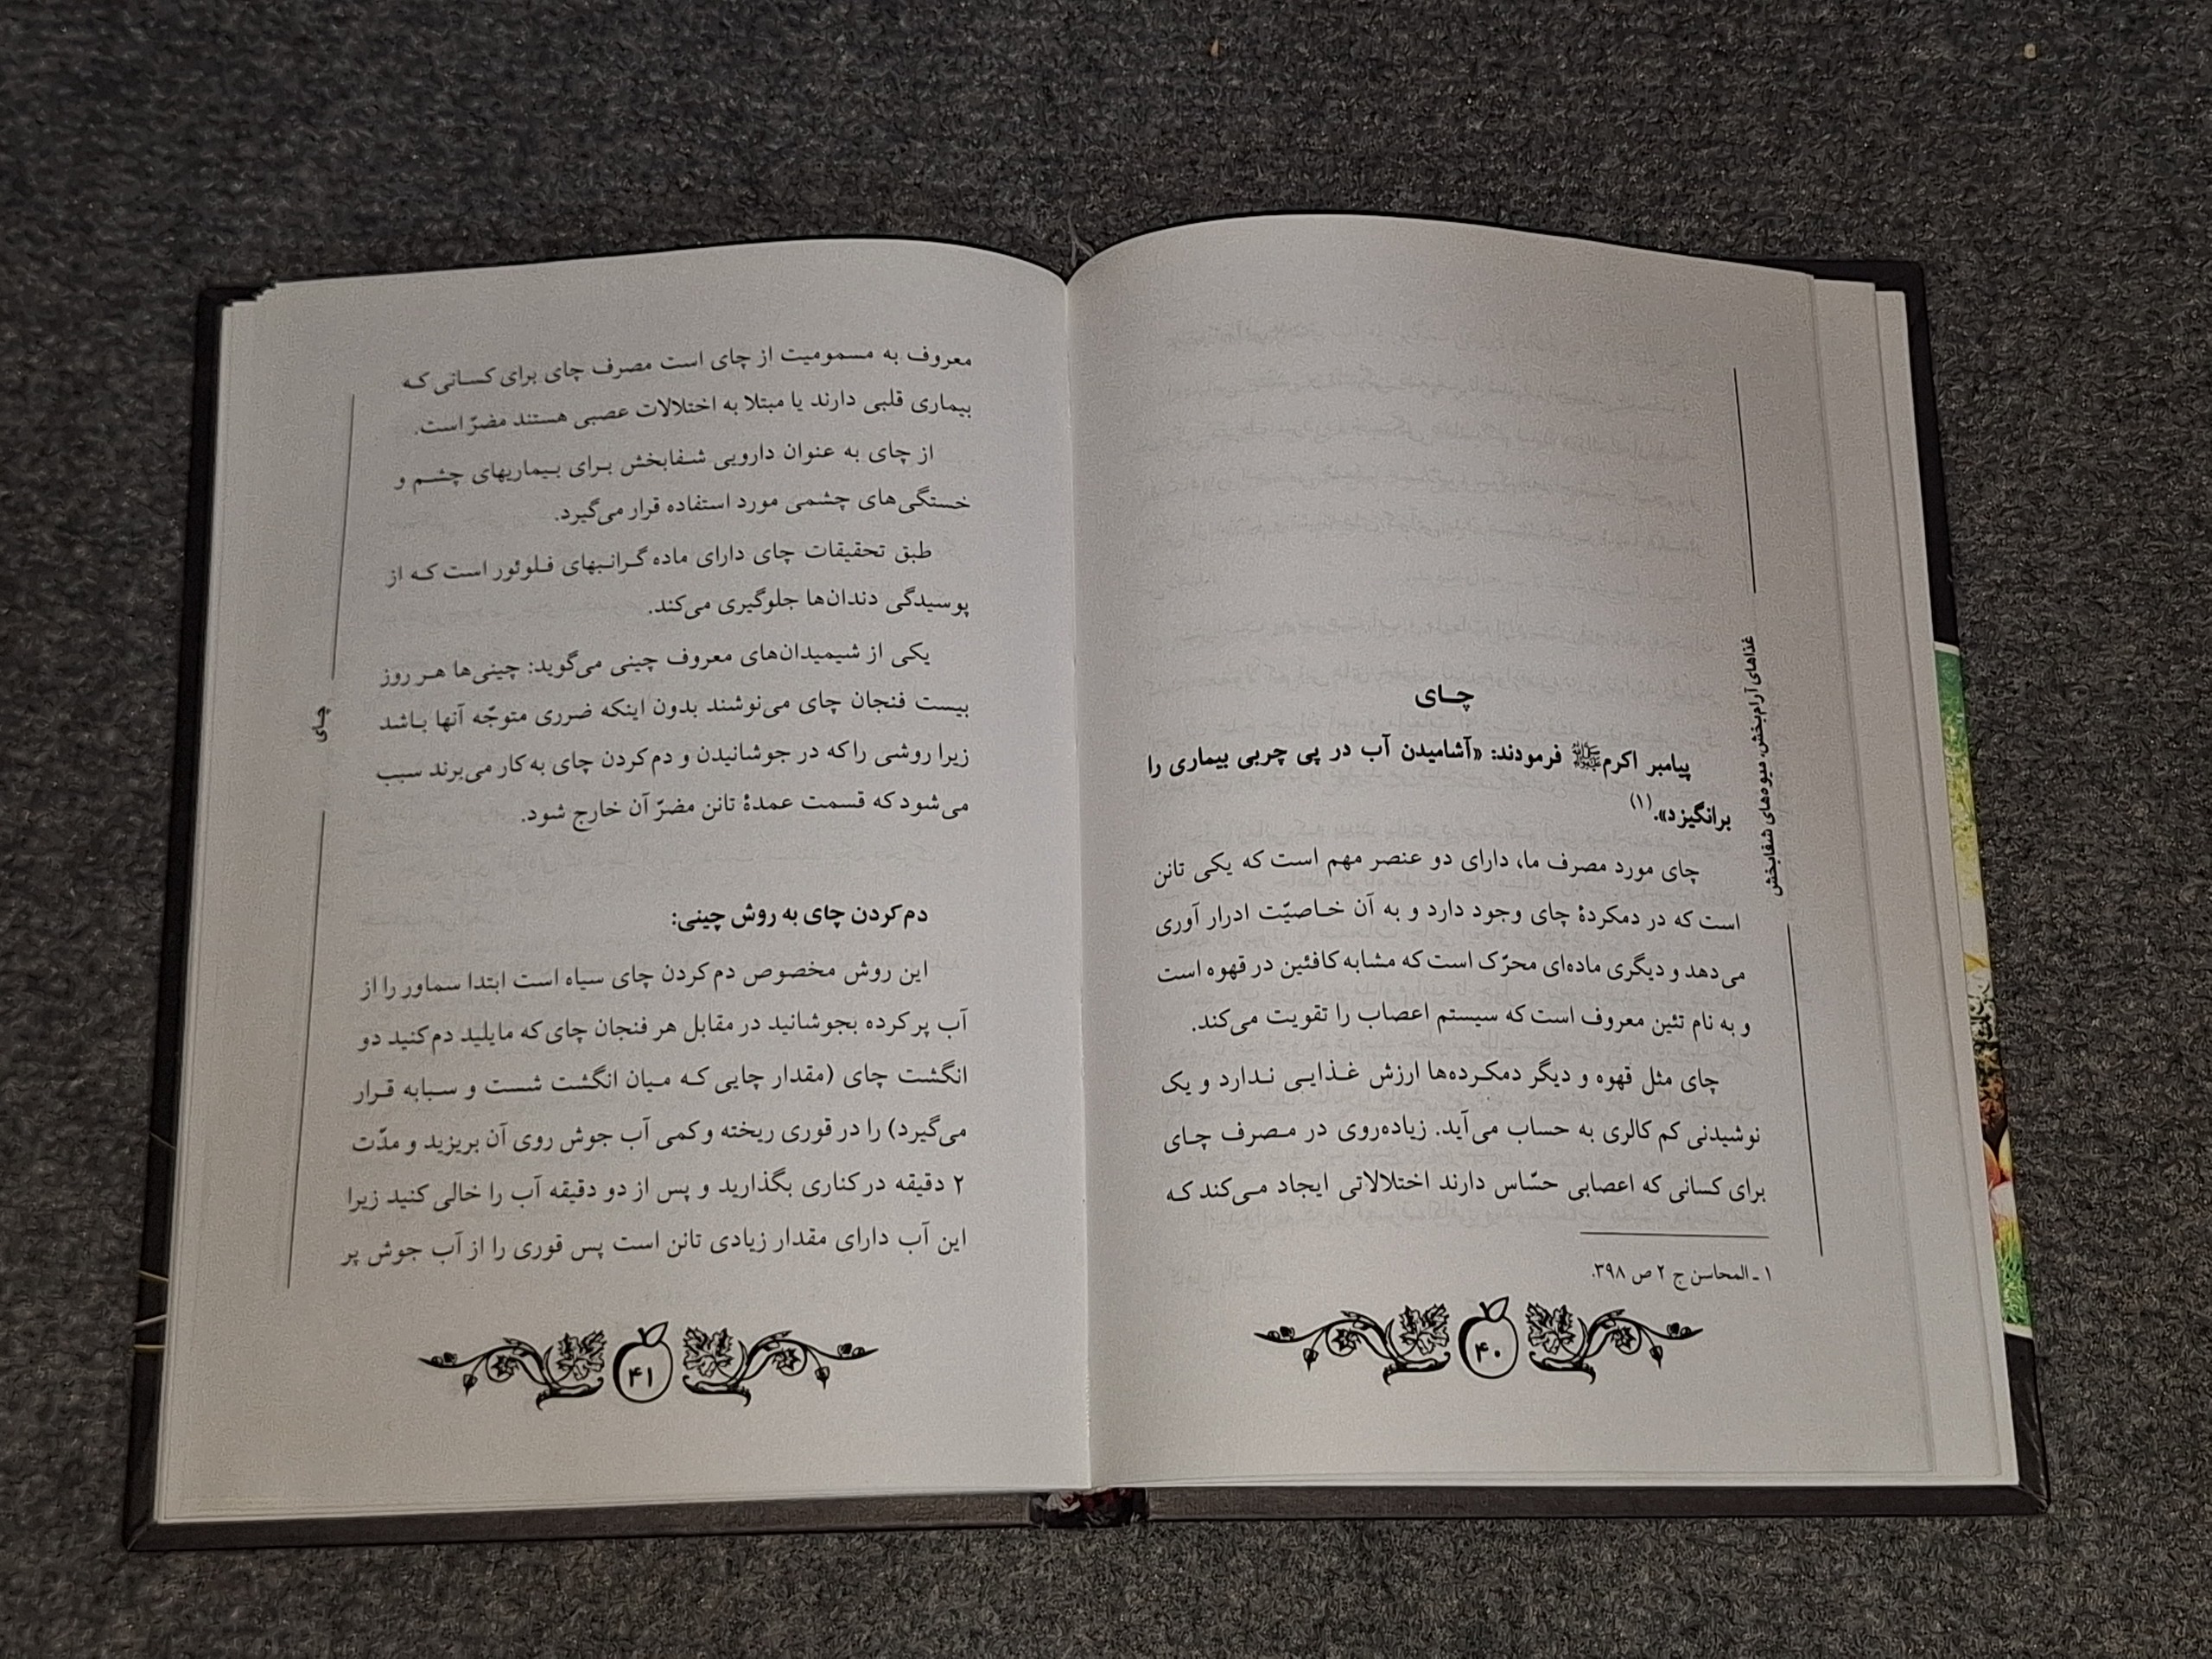 غذاهای آرام‌بخش، میوه‌های شفابخش
چـای
پیامبر اکرمﷺ فرمودند: «آشامیدن آب در پی چربی بیماری را
برانگیزد».(۱)
چای مورد مصرف ما، دارای دو عنصر مهم است که یکی تانن
است که در دمکردهٔ چای وجود دارد و به آن خـاصیّت ادرار آوری
می‌دهد و دیگری ماده‌ای محرّک است که مشابه کافئین در قهوه است
و به نام تئین معروف است که سیستم اعصاب را تقویت می‌کند.
چای مثل قهوه و دیگر دمکـرده‌ها ارزش غـذایـی نـدارد و یک
نوشیدنی کم کالری به حساب می‌آید. زیاده‌روی در مـصرف چـای
برای کسانی که اعصابی حسّاس دارند اختلالاتی ایجاد مـی‌کند کـه
۱ ـ المحاسن ج ۲ ص ۳۹۸.
۴۰
معروف به مسمومیت از چای است مصرف چای برای کسـانی کـه
بیماری قلبی دارند یا مبتلا به اختلالات عصبی هستند مضرّ است.
از چای به عنوان دارویی شـفابخش بـرای بـیماریهای چشـم و
خستگی‌های چشمی مورد استفاده قرار می‌گیرد.
طبق تحقیقات چای دارای ماده گـرانـبهای فـلوئور است کـه از
پوسیدگی دندان‌ها جلوگیری می‌کند.
یکی از شیمیدان‌های معروف چینی می‌گوید: چینی‌ها هـر روز
بیست فنجان چای می‌نوشند بدون اینکه ضرری متوجّه آنها بـاشد
زیرا روشی را که در جوشانیدن و دم کردن چای به کار می‌برند سبب
می‌شود که قسمت عمدهٔ تانن مضرّ آن خارج شود.
دم کردن چای به روش چینی:
این روش مخصوص دم کردن چای سیاه است ابتدا سماور را از
آب پر کرده بجوشانید در مقابل هر فنجان چای که مایلید دم کنید دو
انگشت چای (مقدار چایی کـه مـیان انگشت شست و سـبابه قـرار
می‌گیرد) را در قوری ریخته و کمی آب جوش روی آن بریزید و مدّت
۲ دقیقه در کناری بگذارید و پس از دو دقیقه آب را خالی کنید زیرا
این آب دارای مقدار زیادی تانن است پس قوری را از آب جوش پر
چـای
۴۱